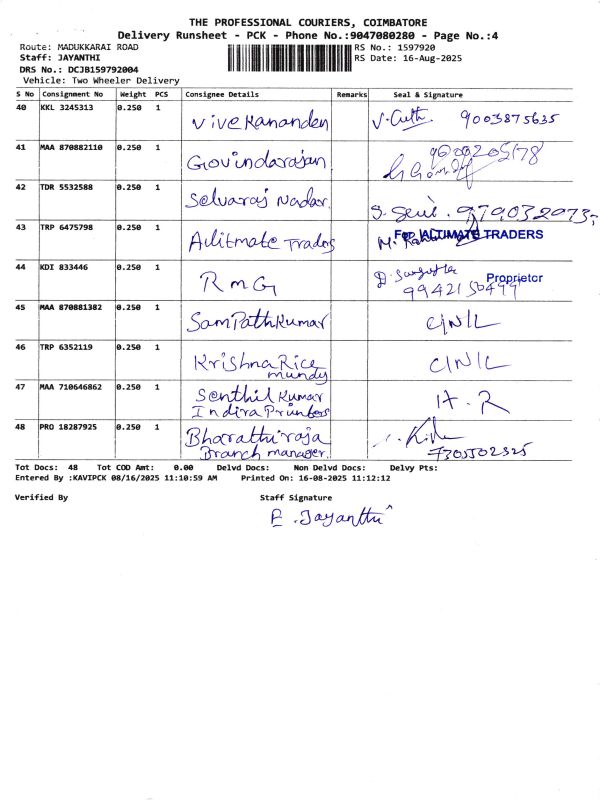 THE PROFESSIONAL COURIERS, COIMBATORE
Delivery Runsheet - PCK - Phone No.:9047080280 - Page No.:4
Route: MADUKKARAI ROAD RS No.: 1597920
Staff: JAYANTHI RS Date: 16-Aug-2025
DRS No.: DCJB159792004
Vehicle: Two Wheeler Delivery
S No Consignment No Weight PCS Consignee Details Remarks Seal & Signature
40 KKL 3245313 0.250 1 Vivekananden 9003875635
41 MAA 870882110 0.250 1 Govindarajan 9600205178
42 TDR 5532588 0.250 1 Selvaraj Nadar.
43 TRP 6475798 0.250 1 Aulitmate Traders For IALTIMATE TRADERS
44 KDI 833446 0.250 1 RMG Proprietor
45 MAA 870881382 0.250 1 SamPathKumar C/N/L
46 TRP 6352119 0.250 1 Krishna Rice C/N/L
mundy
47 MAA 710646862 0.250 1 Senthil Kumar H.R
Indira Printers
48 PRO 18287925 0.250 1 Bharathiraja
Branch manager. 7305502325
Tot Docs: 48 Tot COD Amt: 0.00 Delvd Docs: Non Delvd Docs: Delvy Pts:
Entered By :KAVIPCK 08/16/2025 11:10:59 AM Printed On: 16-08-2025 11:12:12
Verified By Staff Signature
P. Jayanthi